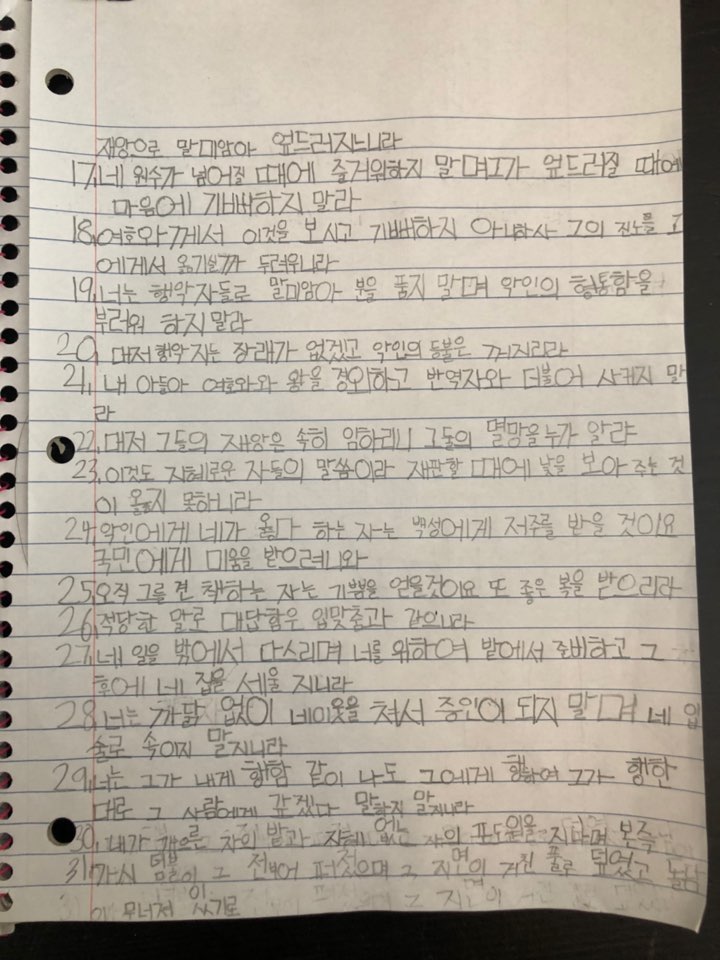 재앙으로 말미암아 엎드러지느니라
17. 네 원수가 넘어질 때에 즐거워하지 말며 그가 엎드러질 때에
마음에 기뻐하지 말라
18. 여호와께서 이것을 보시고 기뻐하지 아니하사 그의 진노를 그
에게서 옮기실까 두려우니라
19. 너는 행악자들로 말미암아 분을 품지 말며 악인의 형통함을
부러워 하지말라
20. 대저 행악자는 장래가 없겠고 악인의 등불은 꺼지리라
21. 내 아들아 여호와와 왕을 경외하고 반역자와 더불어 사귀지 말
라
22. 대저 그들의 재앙은 속히 임하리니 그들의 멸망을 누가 알랴
23. 이것도 지혜로운 자들의 말씀이라 재판할 때에 낯을 보아 주는 것
이 옳지 못하니라
24. 악인에게 네가 옳다 하는 자는 백성에게 저주를 받을 것이요
국민에게 미움을 받으려니와
25. 오직 그를 견책하는 자는 기쁨을 얻을것이요 또 좋은 복을 받으리라
26. 적당한 말로 대답함은 입맞춤과 같으니라
27. 네 일을 밖에서 다스리며 너를 위하여 밭에서 준비하고 그
후에 네 집을 세울 지니라
28. 너는 까닭 없이 네이웃을 쳐서 증인이 되지 말며 네 입
술로 속이지 말지니라
29. 너는 그가 내게 행함 같이 나도 그에게 행하여 그가 행한
대로 그 사람에게 갚겠다 말하지 말지니라
30. 내가 게으른 자의 밭과 지혜 없는 자의 포도원을 지나며 본즉
31. 가시 덤불이 그 전부에 퍼졌으며 그 지면이 거친 풀로 덮였고 돌담
이 무너져 있기로